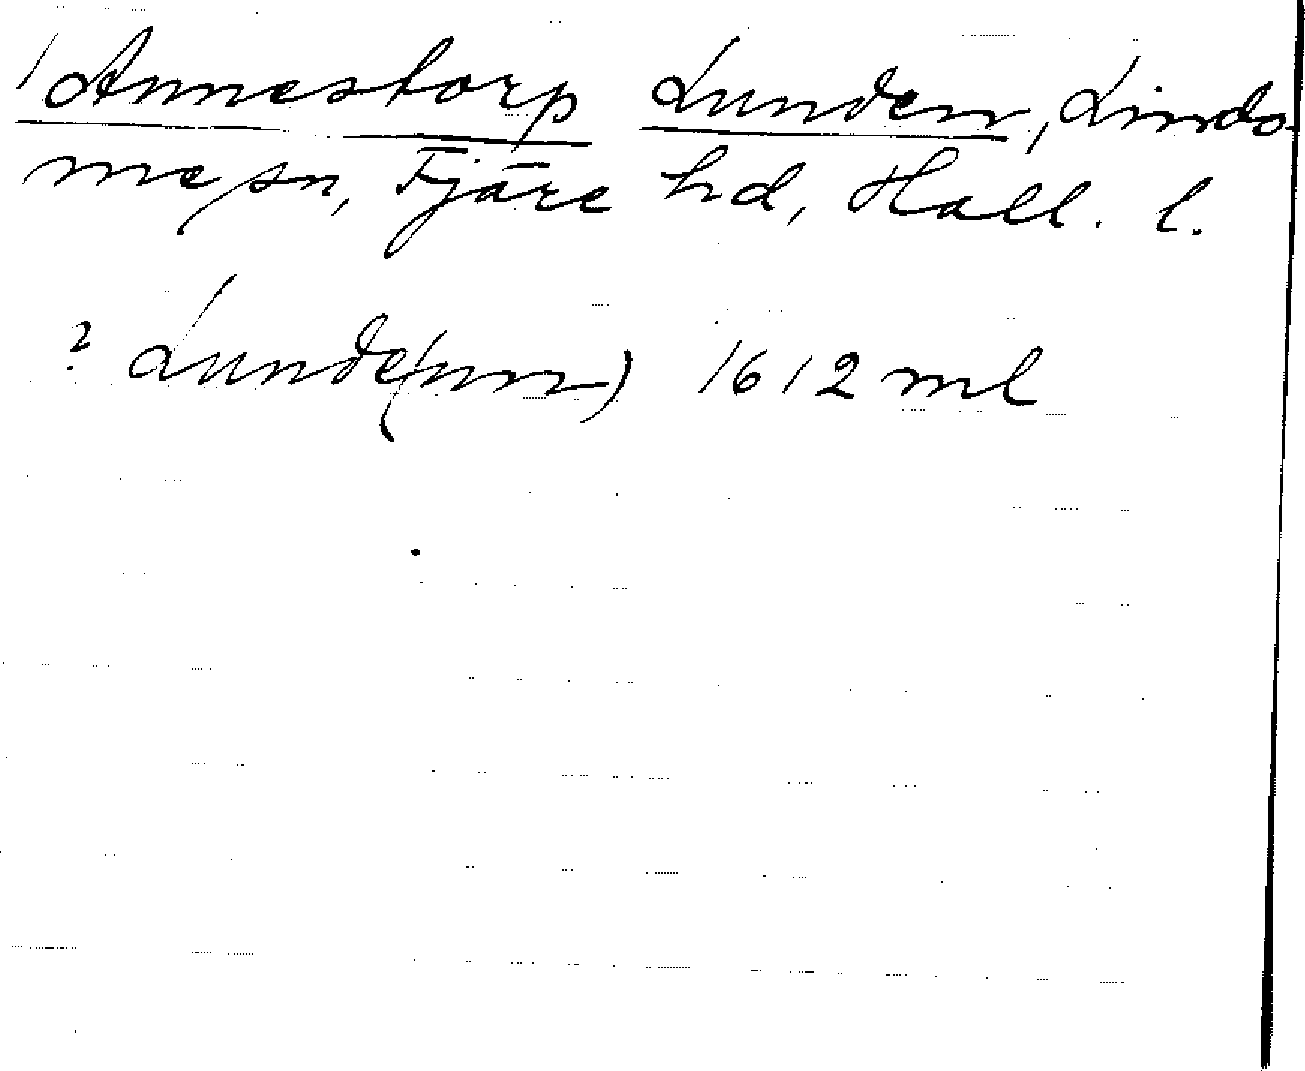 Annestorp Lunden, Lindo-
me sn, Fjäre hd, Hall. l.
? Lunde(nn) 1612 ml